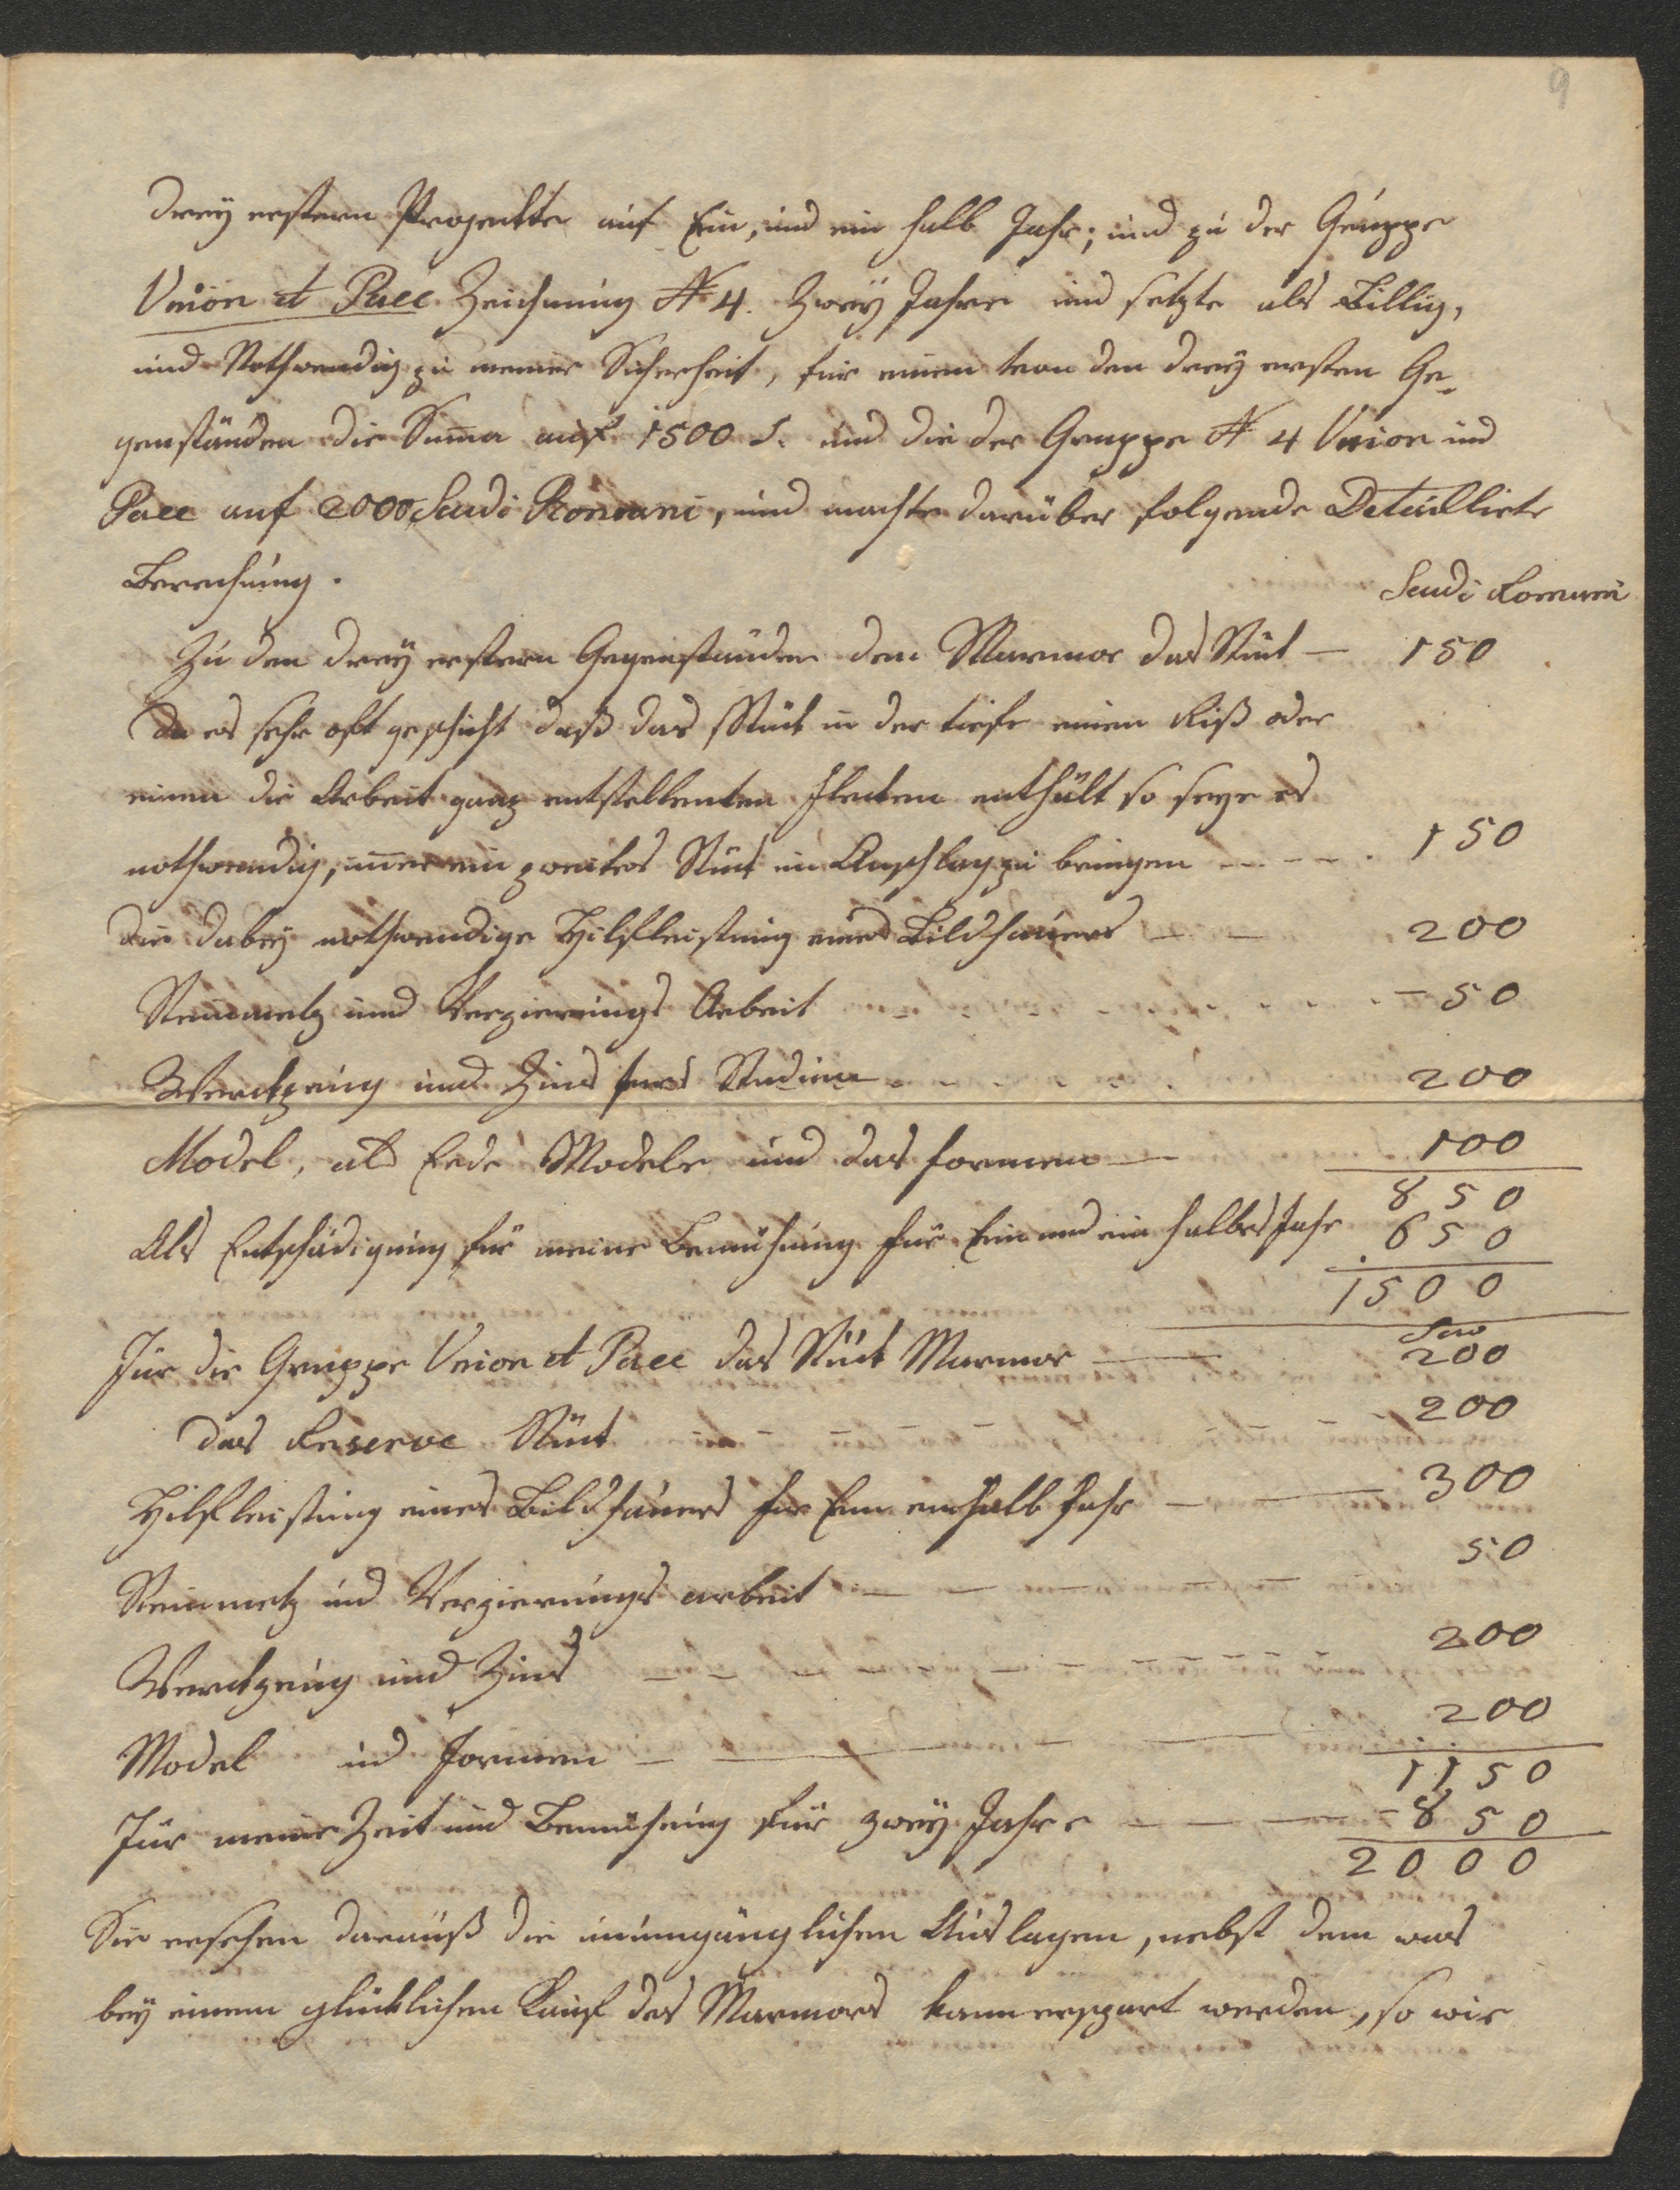 9
drey erstern Projeckte auf Ein, und ein halb Jahr; und zu der Gruppe
Union et Pace Zeichnung N 4. Zwey Jahre und setzte als Billig,
und Nothwendig zu meiner Sicherheit, für einen von den drey ersten Ge-
genständen die Suma auf 1500 S. und die der Gruppe N 4 Union und
Pace auf 2000 Scudi Romani, und machte darüber folgende Detaillirte
Berechnung.
Scudi Romani
Zu den drey erstern Gegenständen den Marmor das Stük — 150
Da es sehr oft geschicht daß das Stük in der tiefe einen Riß oder
einen die Arbeit ganz entstellenten Flecken enthält so seye es
nothwendig, immer ein zweites Stük in Anschlag zu bringen - - - - 150
Die dabey nothwendige Hilfleistung eines Bildhauers - - - 200
Steinmetz und Verzierungs Arbeit - - - - 50
Werckzeug und Zins fürs Studium - - - - 200
Model, als Erde Modele und das formen — 100
850
Als Entschädigung für meine Bemühung für Ein und ein halbes Jahr 650
1500
Scu
Für die Gruppe Union et Pace das Stük Marmor — 200
das Reserve Stük - - - - 200
Hilfleistung eines Bildhauers für Ein einhalb Jahr - — 300
Steinmetz und Verzierungs arbeit - - - - 50
Werckzeug und Zins - - - - 200
Model und Formen - — - — 200
1150
Für meine Zeit und Bemühung für zwey Jahre - - - - 850
2000
Sie ersehen darauß die unumgänglichen Auslagen, nebst dem was
bey einem glücklichen Kauf des Marmors kann erspart werden, so wie